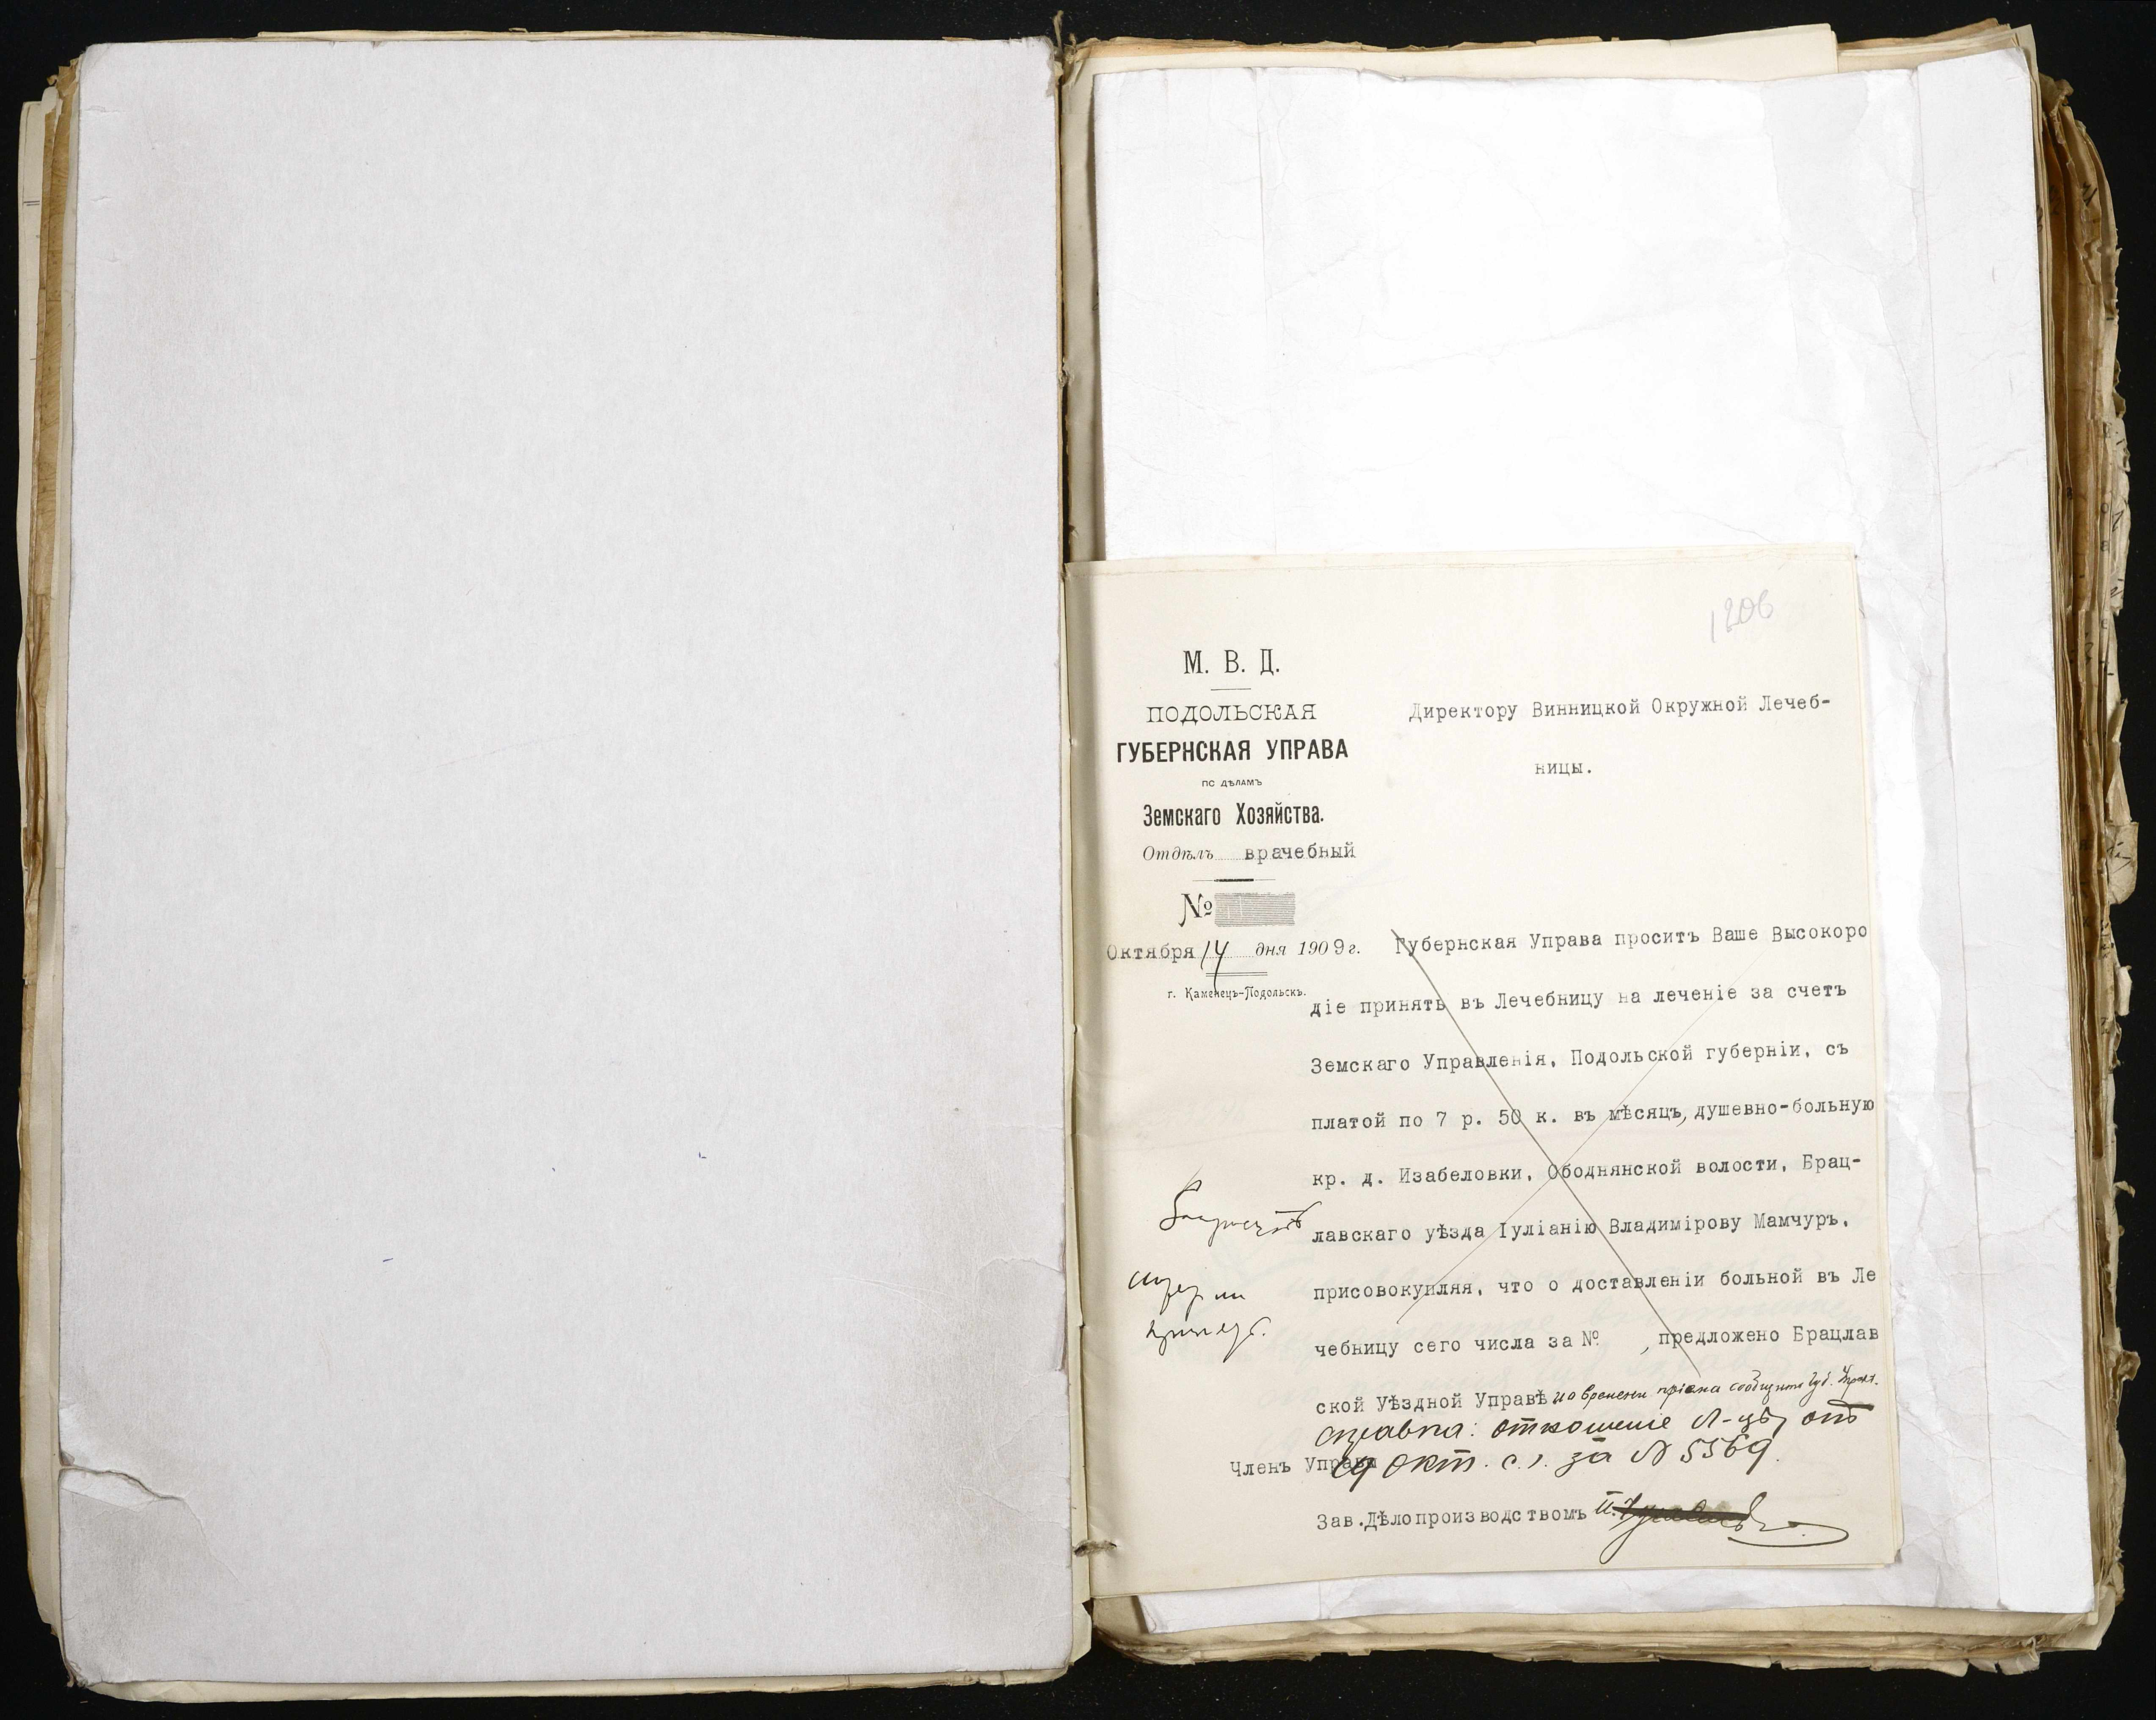 1206
М. В. Д.
ПОДОЛЬСКАЯ
ГУБЕРНСКАЯ УПРАВА
по дѣламъ
Земскаго Хозяйства.
Отдѣлъ врачебный
№
Октября 14 дня 1909 г.
г. Каменецъ-Подольскъ.
Директору Винницкой Окружной Лечеб-
ницы.
Губернская Управа проситъ Ваше Высокоро
діе принять въ Лечебницу на леченіе за счетъ
Земскаго Управленія, Подольской губерніи, съ
платой по 7 р. 50 к. въ мѣсяцъ, душевно-больную
кр. д. Изабеловки, Ободнянской волости, Брац-
лавскаго уѣзда Іуліанію Владимірову Мамчуръ,
присовокупляя, что о доставленіи больной въ Ле
чебницу сего числа за № , предложено Брацлав
ской Уѣздной Управѣ и о времени пріема сообщить Губ. Управ.
справка: отношеніе Л-цы отъ
19 окт. с.г. за № 5569.
Членъ Управы
Зав.Дѣлопроизводствомъ